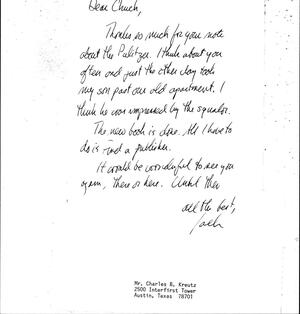 Dear Chuck,
Thanks so much for your note
about the Pulitzer. I think about you
often and just the other day took
my son past our old apartment. I
think he was impressed by the squalor.
The new book is done. All I have to
do is find a publisher.
It would be wonderful to see you
again, there or here. Until then
all the best,
Mr. Charles B. Kreutz
2500 Interfirst Tower
Austin, Texas 78701